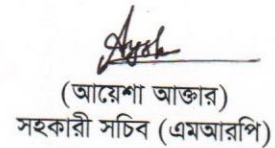 (আয়েশা আক্তার)
সহকারী সচিব (এমআরপি)